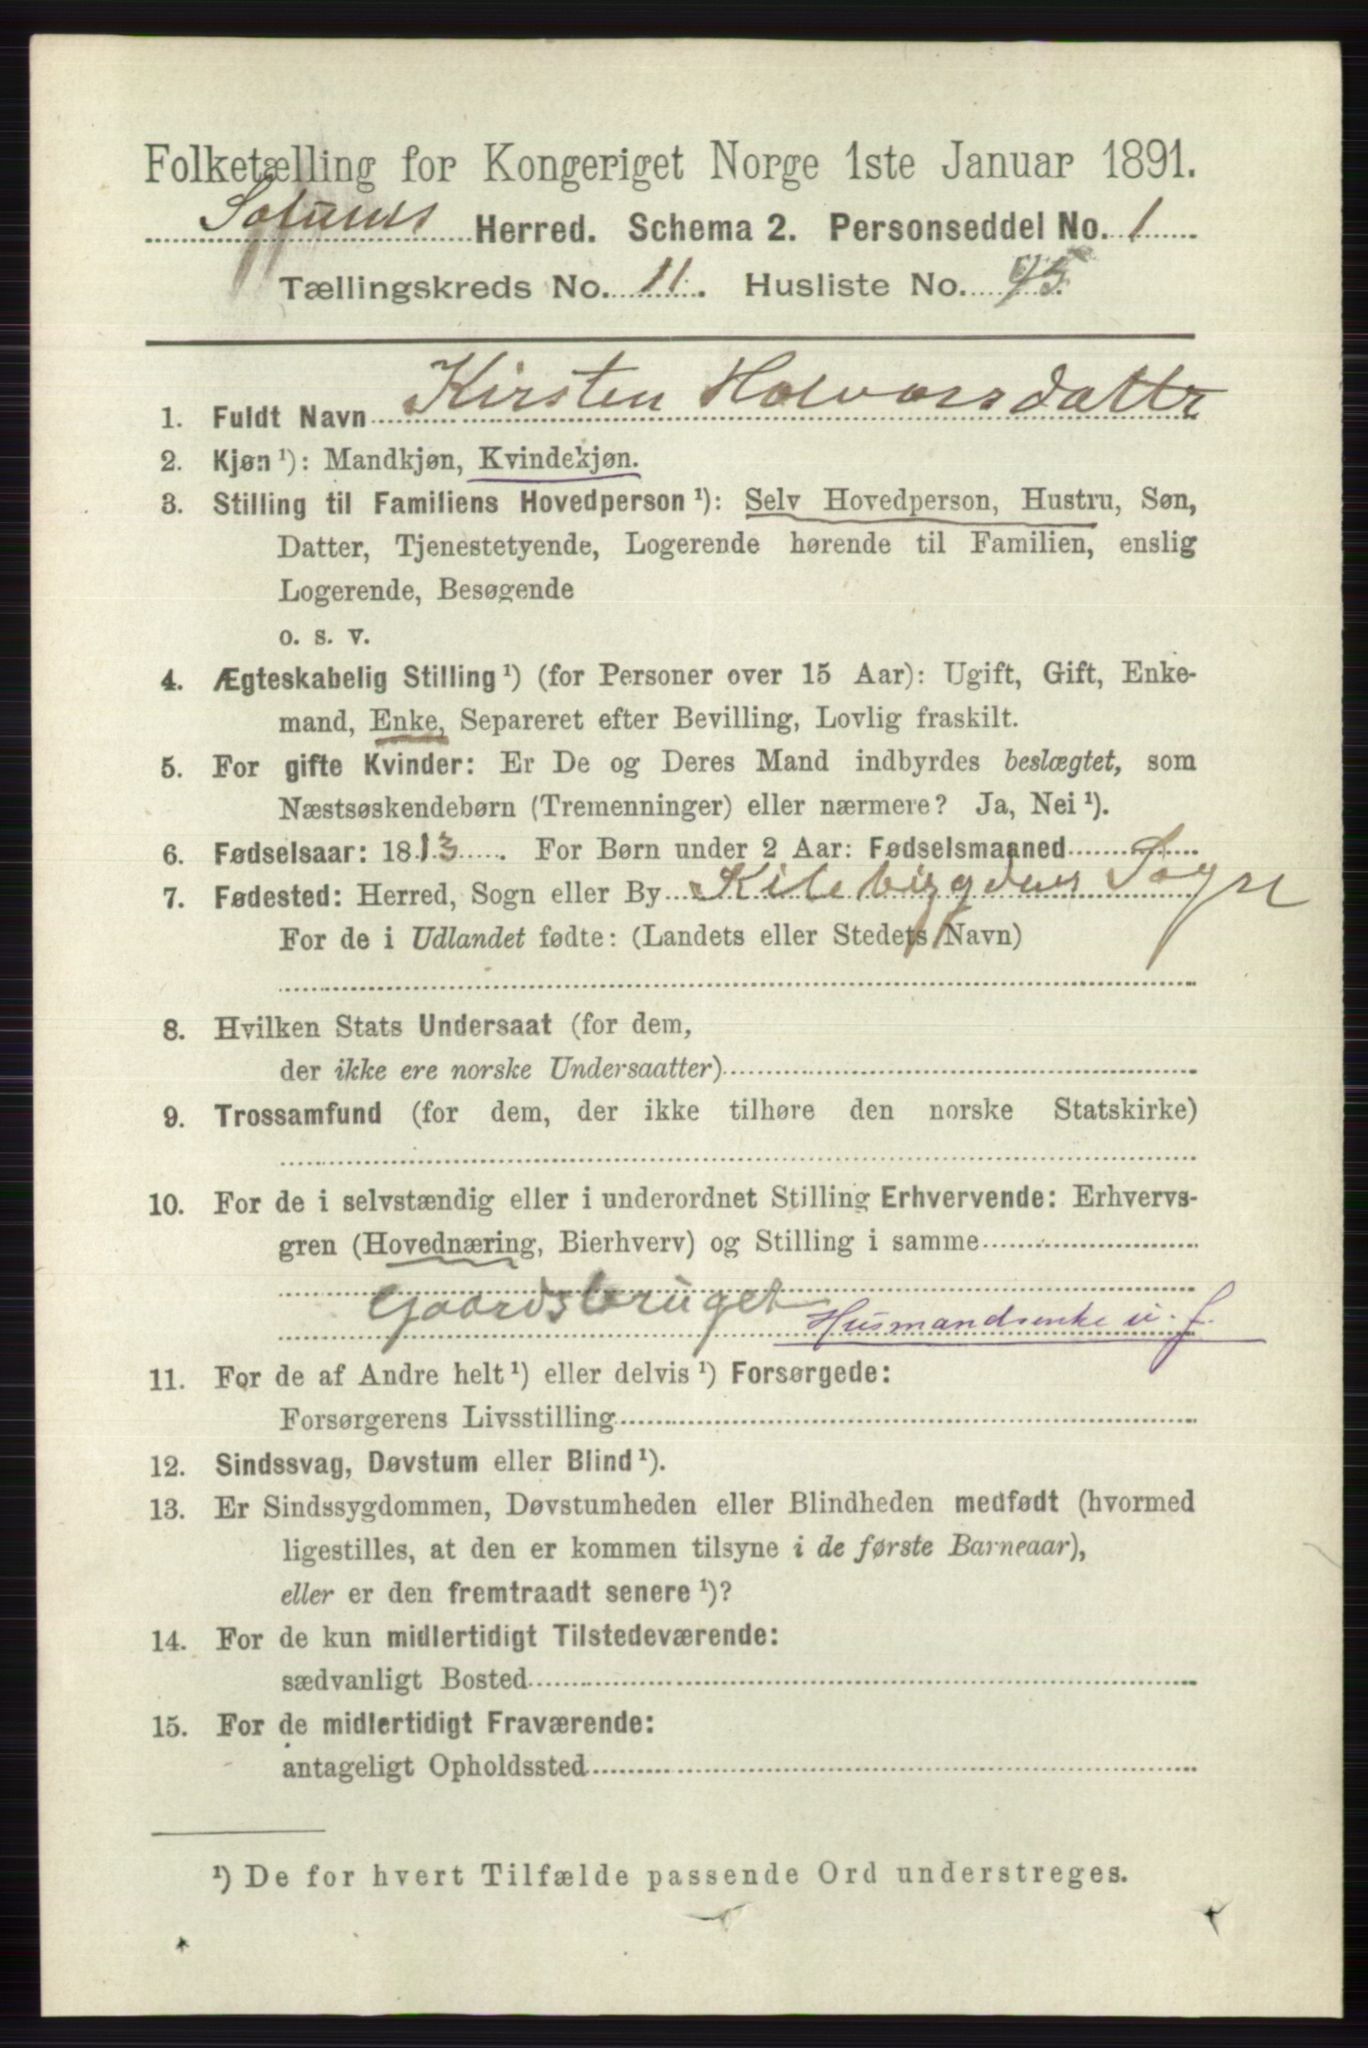 Folketælling for Kongeriget Norge 1ste Januar 1891.
Solums Herred. Schema 2. Personseddel No. 1
Tællingskreds No. 11. Husliste No. 95.
1. Fuldt Navn Kirsten Halvorsdattr
2. Kjøn ¹): Mandkjøn, Kvindekjøn.
3. Stilling til Familiens Hovedperson ¹): Selv Hovedperson, Hustru, Søn,
Datter, Tjenestetyende, Logerende hørende til Familien, enslig
Logerende, Besøgende
o. s. v.
4. Ægteskabelig Stilling ¹) (for Personer over 15 Aar): Ugift, Gift, Enke-
mand, Enke, Separeret efter Bevilling, Lovlig fraskilt.
5. For gifte Kvinder: Er De og Deres Mand indbyrdes beslægtet, som
Næstsøskendebørn (Tremenninger) eller nærmere? Ja, Nei ¹).
6. Fødselsaar: 1813. For Børn under 2 Aar: Fødselsmaaned
7. Fødested: Herred, Sogn eller By Kilebygdens Sogn
For de i Udlandet fødte: (Landets eller Stedets Navn)
8. Hvilken Stats Undersaat (for dem,
der ikke ere norske Undersaatter)
9. Trossamfund (for dem, der ikke tilhøre den norske Statskirke)
10. For de i selvstændig eller i underordnet Stilling Erhvervende: Erhvervs-
gren (Hovednæring, Bierhverv) og Stilling i samme
Gaardsbruget Husmandsenke u. f.
11. For de af Andre helt ¹) eller delvis ¹) Forsørgede:
Forsørgerens Livsstilling
12. Sindssvag, Døvstum eller Blind ¹).
13. Er Sindssygdommen, Døvstumheden eller Blindheden medfødt (hvormed
ligestilles, at den er kommen tilsyne i de første Barneaar),
eller er den fremtraadt senere ¹)?
14. For de kun midlertidigt Tilstedeværende:
sædvanligt Bosted
15. For de midlertidigt Fraværende:
antageligt Opholdssted
¹) De for hvert Tilfælde passende Ord understreges.